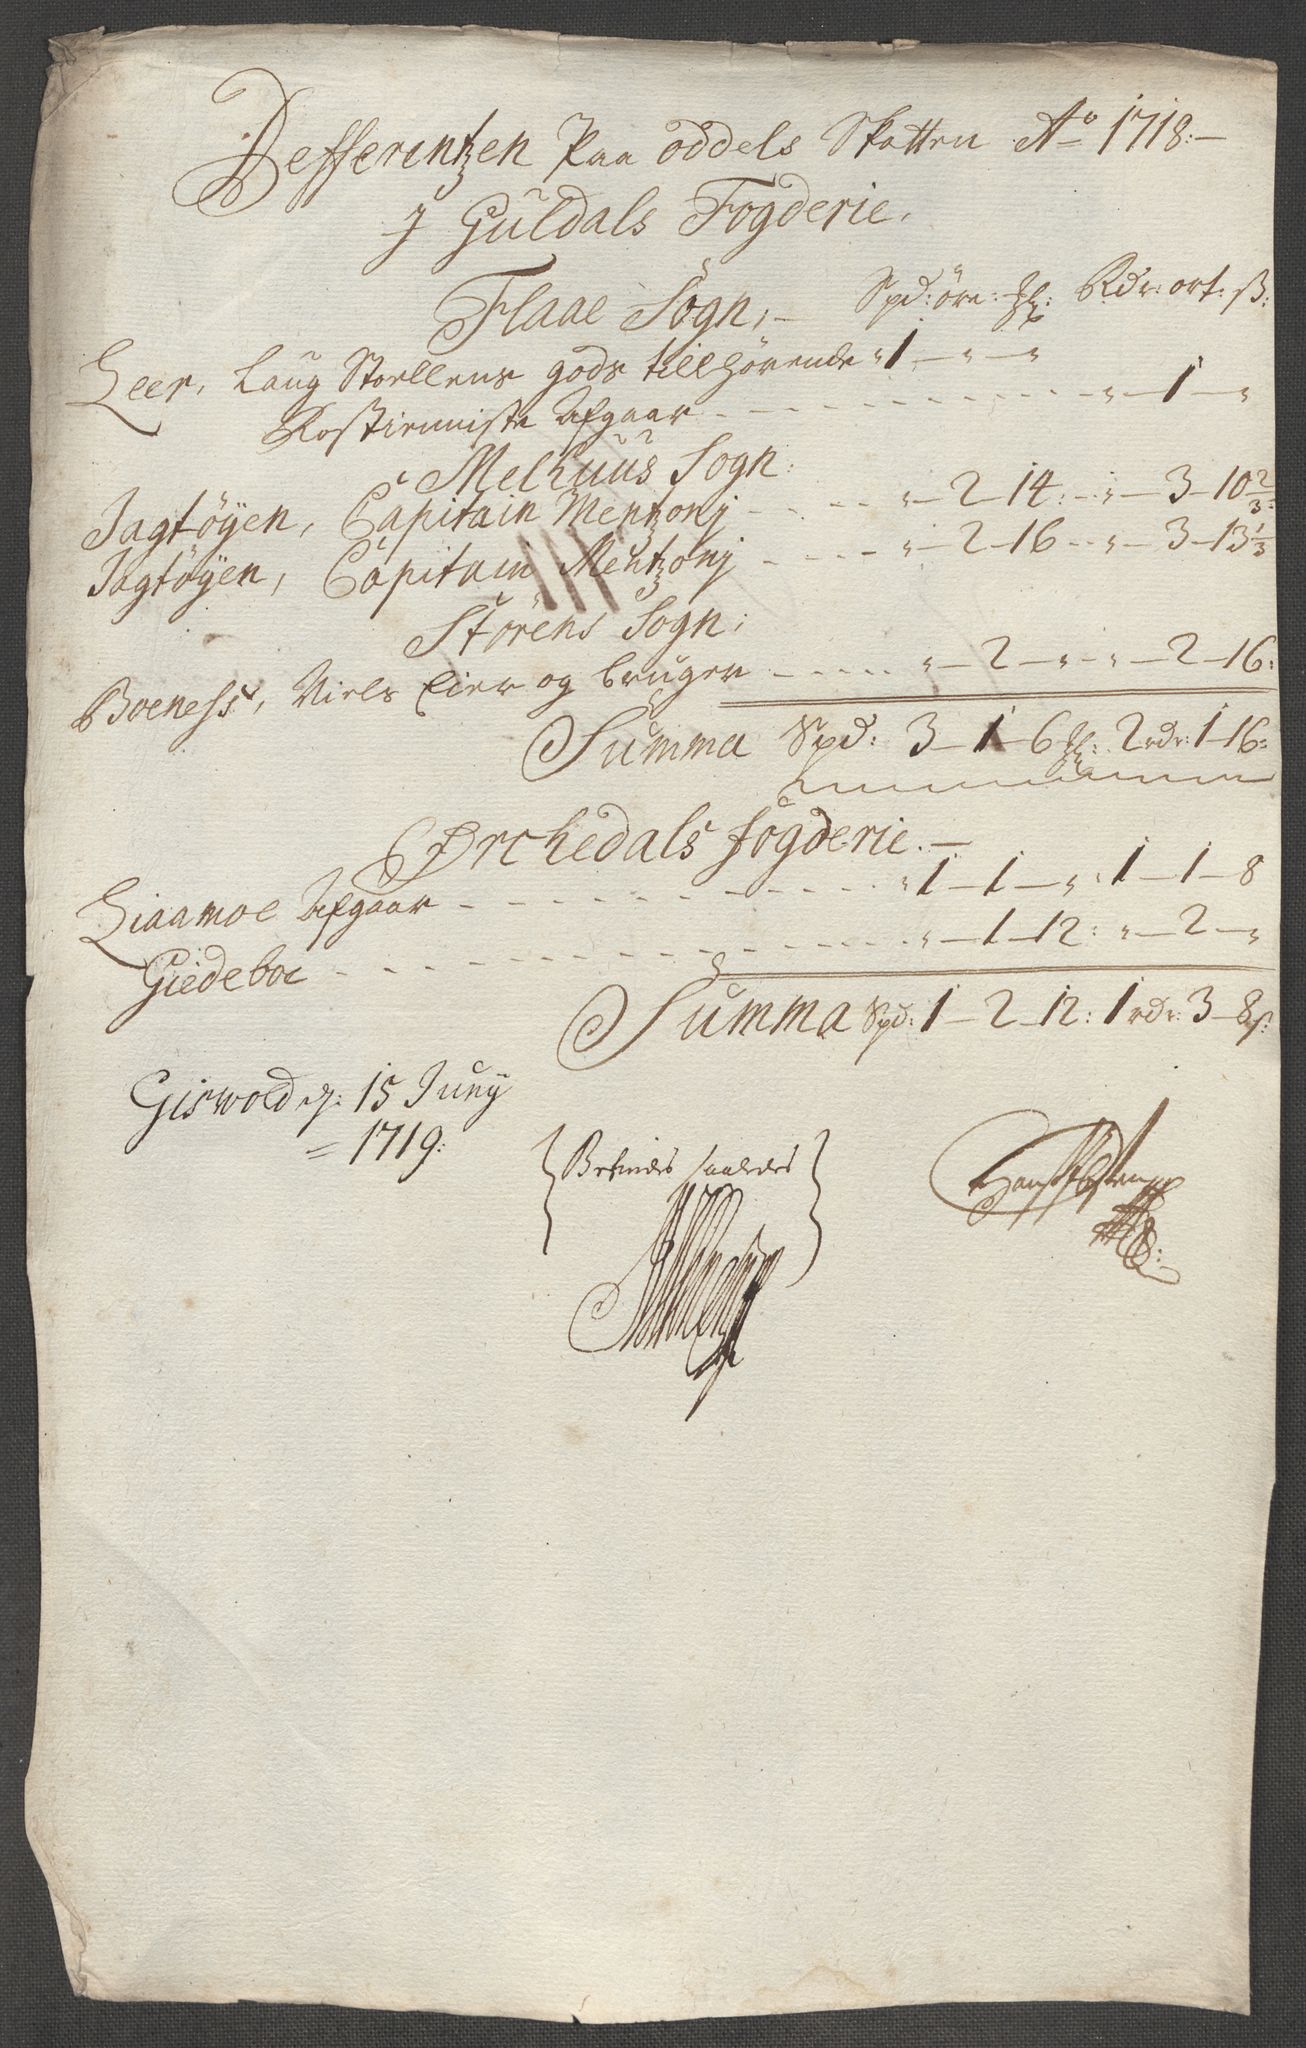 Defferentzen Paa oddels Skatten Ao 1718:
J Guldals Fogderie.
Flaae Sogn, Spd: öre: Rdr: ort: ß:
Leer, Laug Stoellens gods tillhörende „ 1 „ „
Afgaar „ 1 „
Melhuus Sogn:
Jagtøyen, Capitain Mentzonj „ 2 14: „ 3 10 2/3:
Jagtøyen, Capitain Mentzonj „ 2 16 „ 3 13 1/3
Störens Sogn:
Boeness, Niels Eier og bruger „ 2 „ „ 2 16:
Summa Spd: 3 1 6 2 rdr: 1 16:
Ørchedals fogderie.
Liaamoe Afgaar „ 1 1 „ 1 1 8
Giedeboe „ 1 12: „ 2 „
Summa Spd: 1 2 12: 1 rdr: 3 8 s:
Giswold d: 15 Juny
1719:
Befindes saaledes